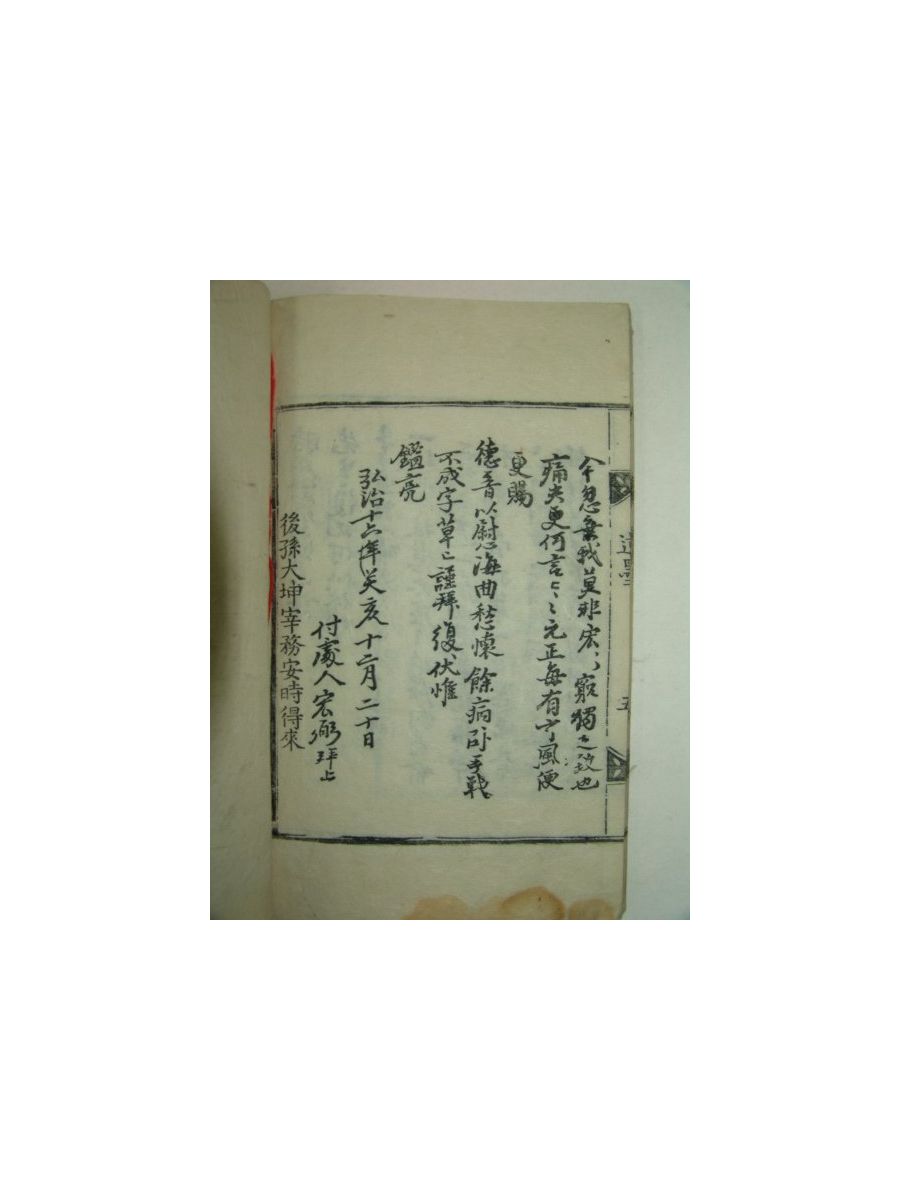 今忽棄我莫非宏〻窮獨之致也
痛夫更何言〻〻元正每有 風便
更賜
德音以慰海曲愁懷餘病卧手戰
不成字草〻謹拜復伏惟
鑑亮
弘治十六年癸亥十二月二十日
付處人宏弼拜上
後孫大坤宰務安時得來
遺墨
五